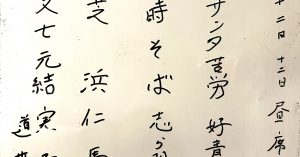 十二日 十二日 昼席
サンタ苦労 好青
時そば 志
芝浜 仁馬
文七元結 実
道